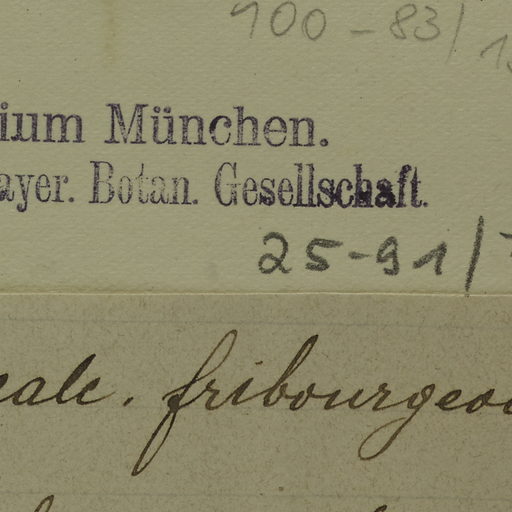 100-83/
ium München.
ayer. Botan. Gesellschaft.
25-91/
calc. fribourgeoi